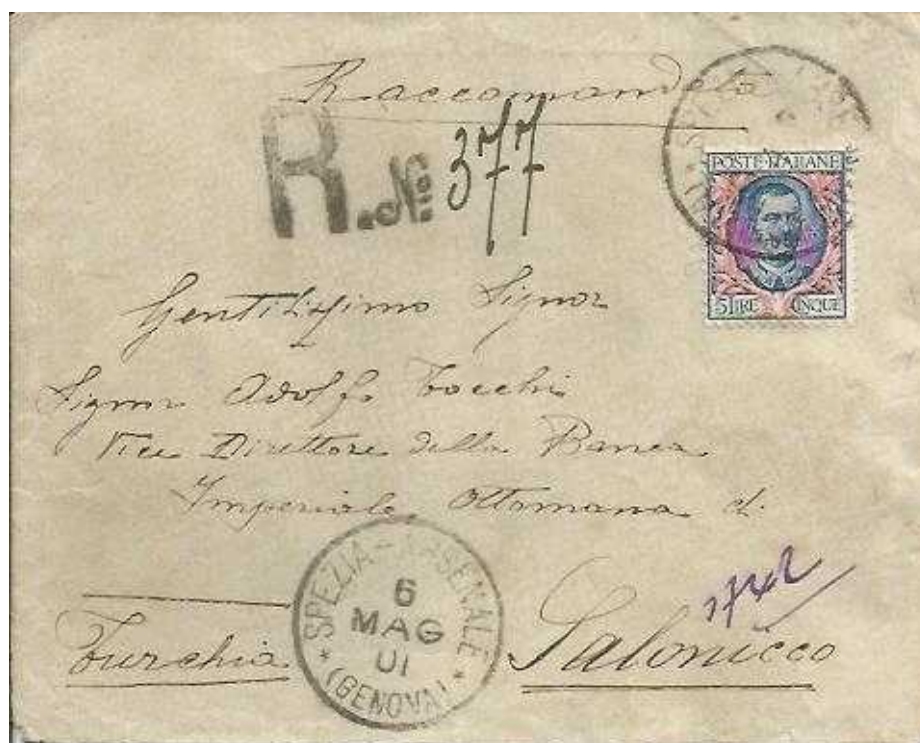 Raccomandata
R. No. 377
POSTE ITALIANE
5 LIRE CINQUE
Gentilissimo Signor
Signor Adolfo Tocchi
Vice Direttore della Banca
Imperiale Ottomana di
1742
Salonicco
Turchia
SPEZIA-ARSENALE
6
MAG
01
(GENOVA)